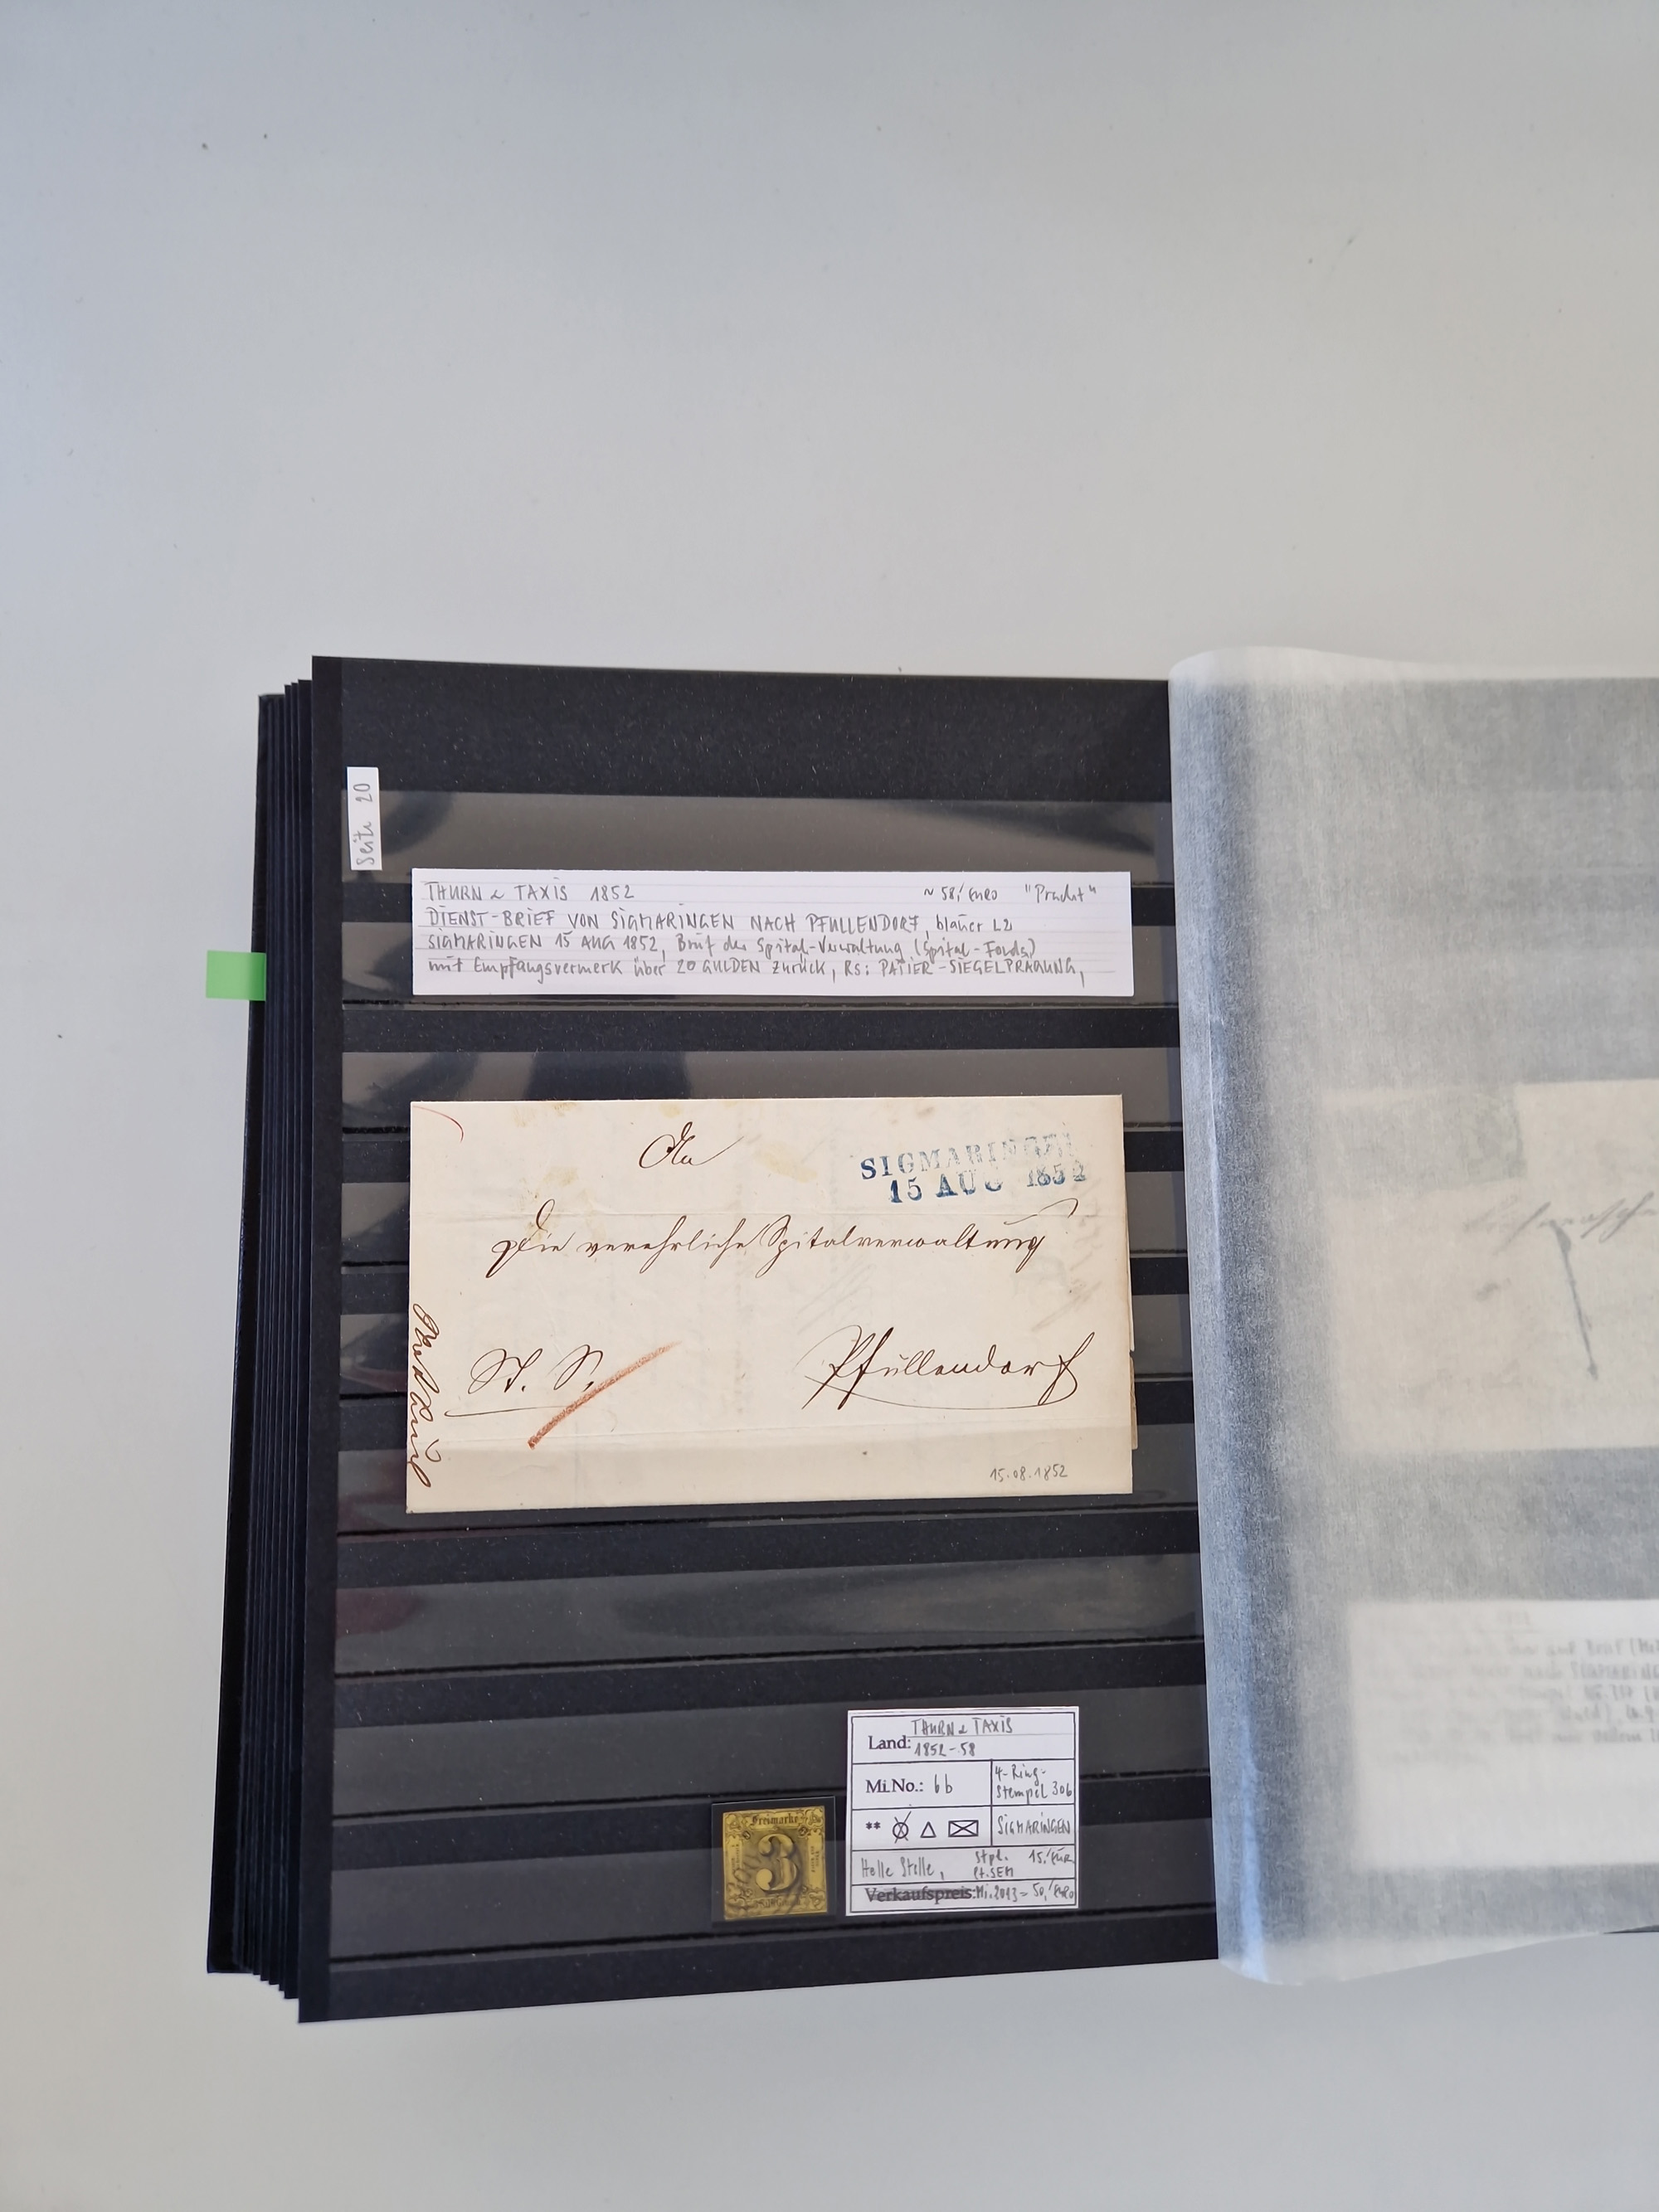 Seite 20
THURN & TAXIS 1852 ~ 58,- EURO "Pracht"
DIENST-BRIEF VON SIGMARINGEN NACH PFULLENDORF, blauer L2
SIGMARINGEN 15 AUG 1852, Brief der Spital-Verwaltung (Spital-Fonds)
mit Empfangsvermerk über 20 GULDEN zurück, RS: PAPIER-SIEGELPRÄGUNG,
An
SIGMARINGEN
15 AUG 1852
Die verehrliche Spitalverwaltung
St. S.
Pfullendorf
15.08.1852
Land: THURN & TAXIS
1852-58
Mi.No.: 6b
4-Ring-
Stempel 306
**
SIGMARINGEN
Helle Stelle,
Stpl. 15,- EUR
Pt. SEM
Verkaufspreis: Mi.2013 = 50,- EURO
Freimarke
3